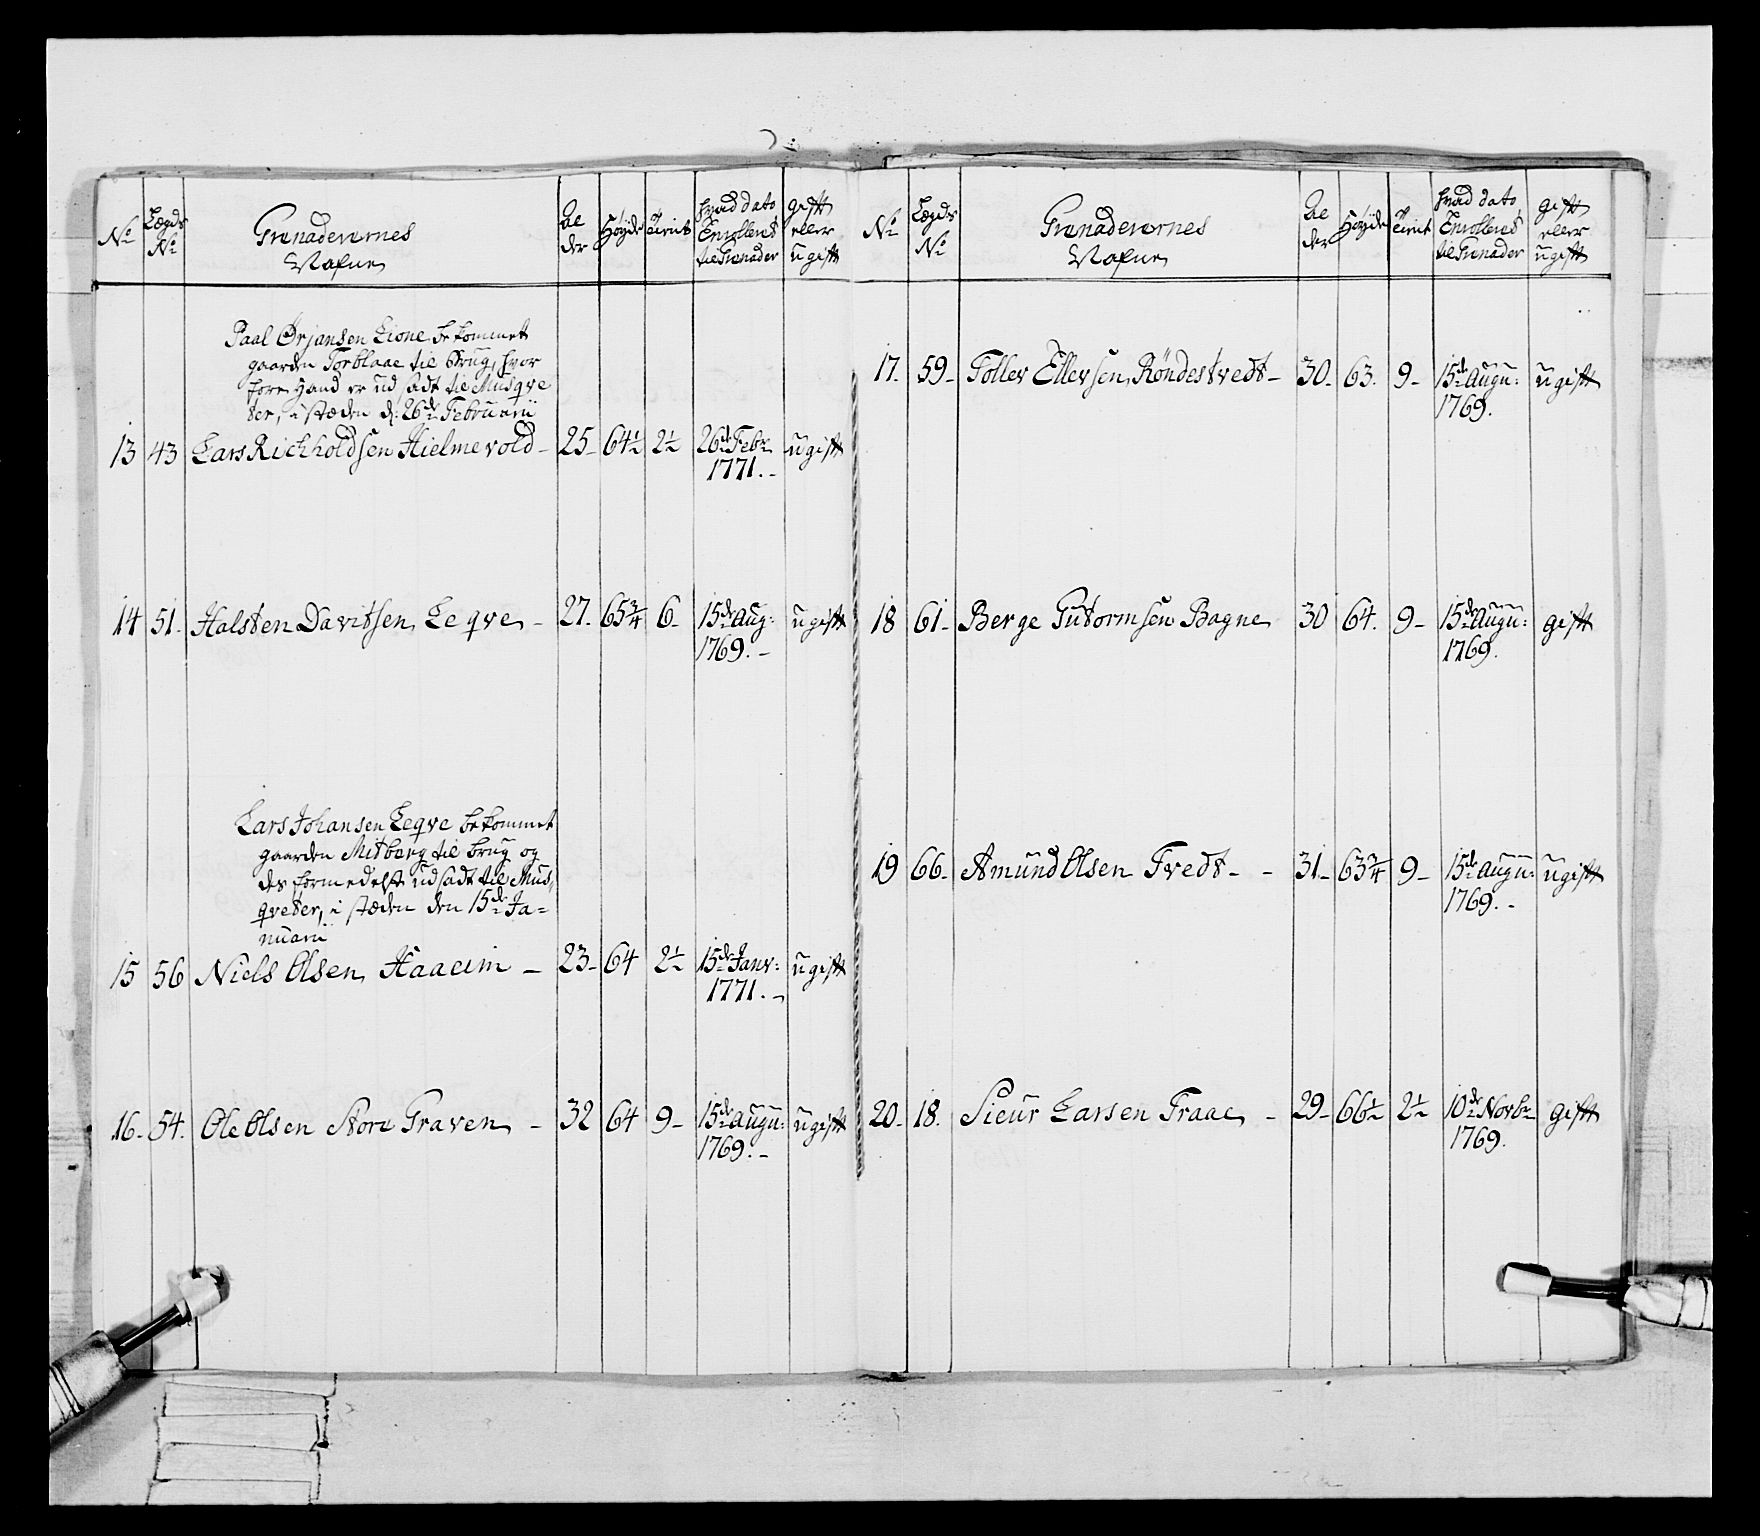 No
Lægds No
Grenaderernes Nafne
Alder
Høyde
Tienist
hvad dato Enrolleret til Grenader
gift eller ugift
Paal Ørjansen Lione bekommet
gaarden Torblaae til Brug, hvor
fore Hand er udsadt til Musqve
ter, i stæden d: 26de Februarii
13 43 Lars Richholdsen Hielmevold - 25 - 64½ 2½ 26de Febr 1771. - ugift
14 51. Halsten Davitsen Leqve - 27. 65¾ 6 - 15de Aug: 1769. - ugift
Lars Johansen Leqve bekommet
gaarden Mitbærg til brug og
der formedelst udsadt til Mus,
qveter, i stæden den 15de Ja=
nuarii
15 56 Niels Olsen Haaeim - 23 - 64 2½ 15de Janv: 1771. - ugift
16 - 54. Ole Olsen Store Graven - 32 64 9 - 15de Augu: 1769. - ugift
No
Lægds No
Grenaderernes Nafne
Alder
Høyde
Tienist
hvad dato Enrolleret til Grenader
gift eller ugift
17. 59 - Toller Ellevsen Röndestvedt - 30 - 63. 9 - 15de Augu: 1769. ugift
18 61 - Berge Gutormsen Bagne 30 64. 9 - 15de Augu: 1769. gift
19 66 - Amund Olsen Tvedt - - 31 - 63¾ 9 - 15de Augu: 1769. - ugift
20 - 18. Sieur Larsen Traae - 29 - 66½ 2½ 10de Novbr 1769. gift